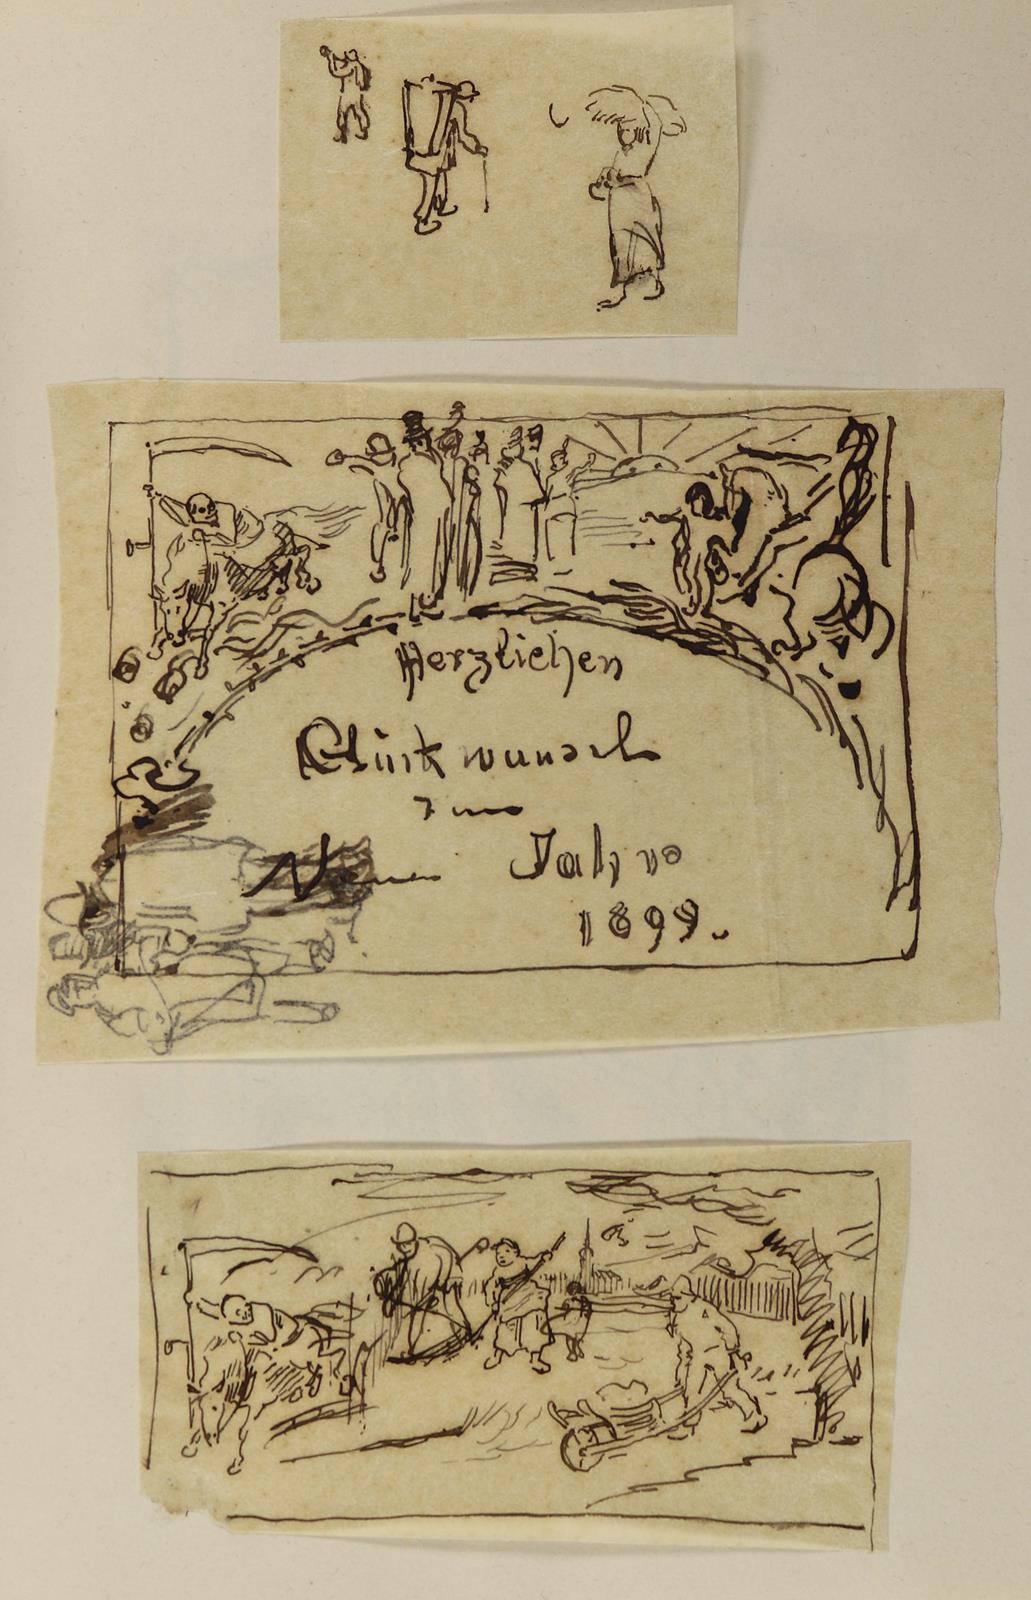 Herzlichen
Glückwunsch
zum
Neuen Jahre
1899.